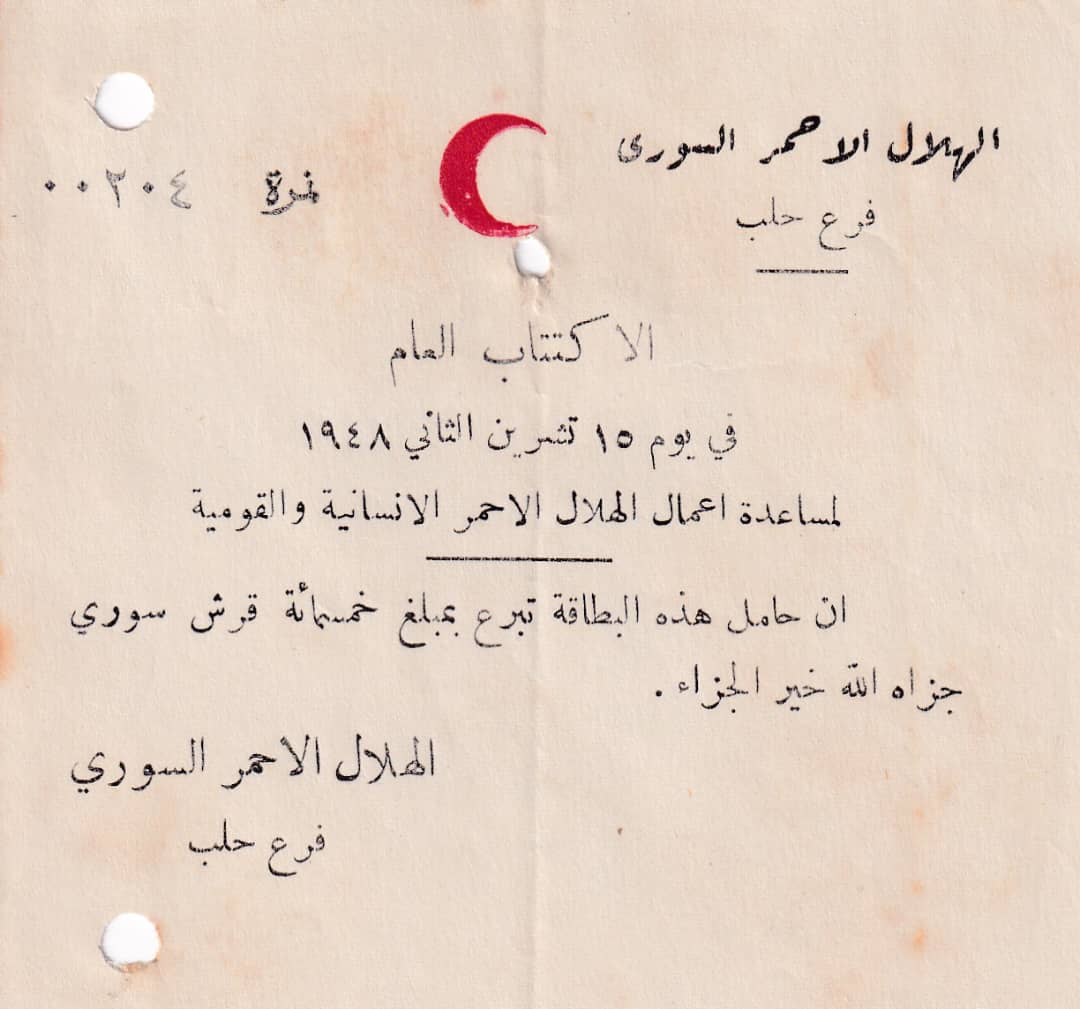 الهلال الاحمر السورى
فرع حلب
نمرة ٠٠٢٠٤
الاكتتاب العام
في يوم ١٥ تشرين الثاني ١٩٤٨
لمساعدة اعمال الهلال الاحمر الانسانية والقومية
ان حامل هذه البطاقة تبرع بمبلغ خمسمائة قرش سوري
جزاه الله خير الجزاء .
الهلال الاحمر السوري
فرع حلب